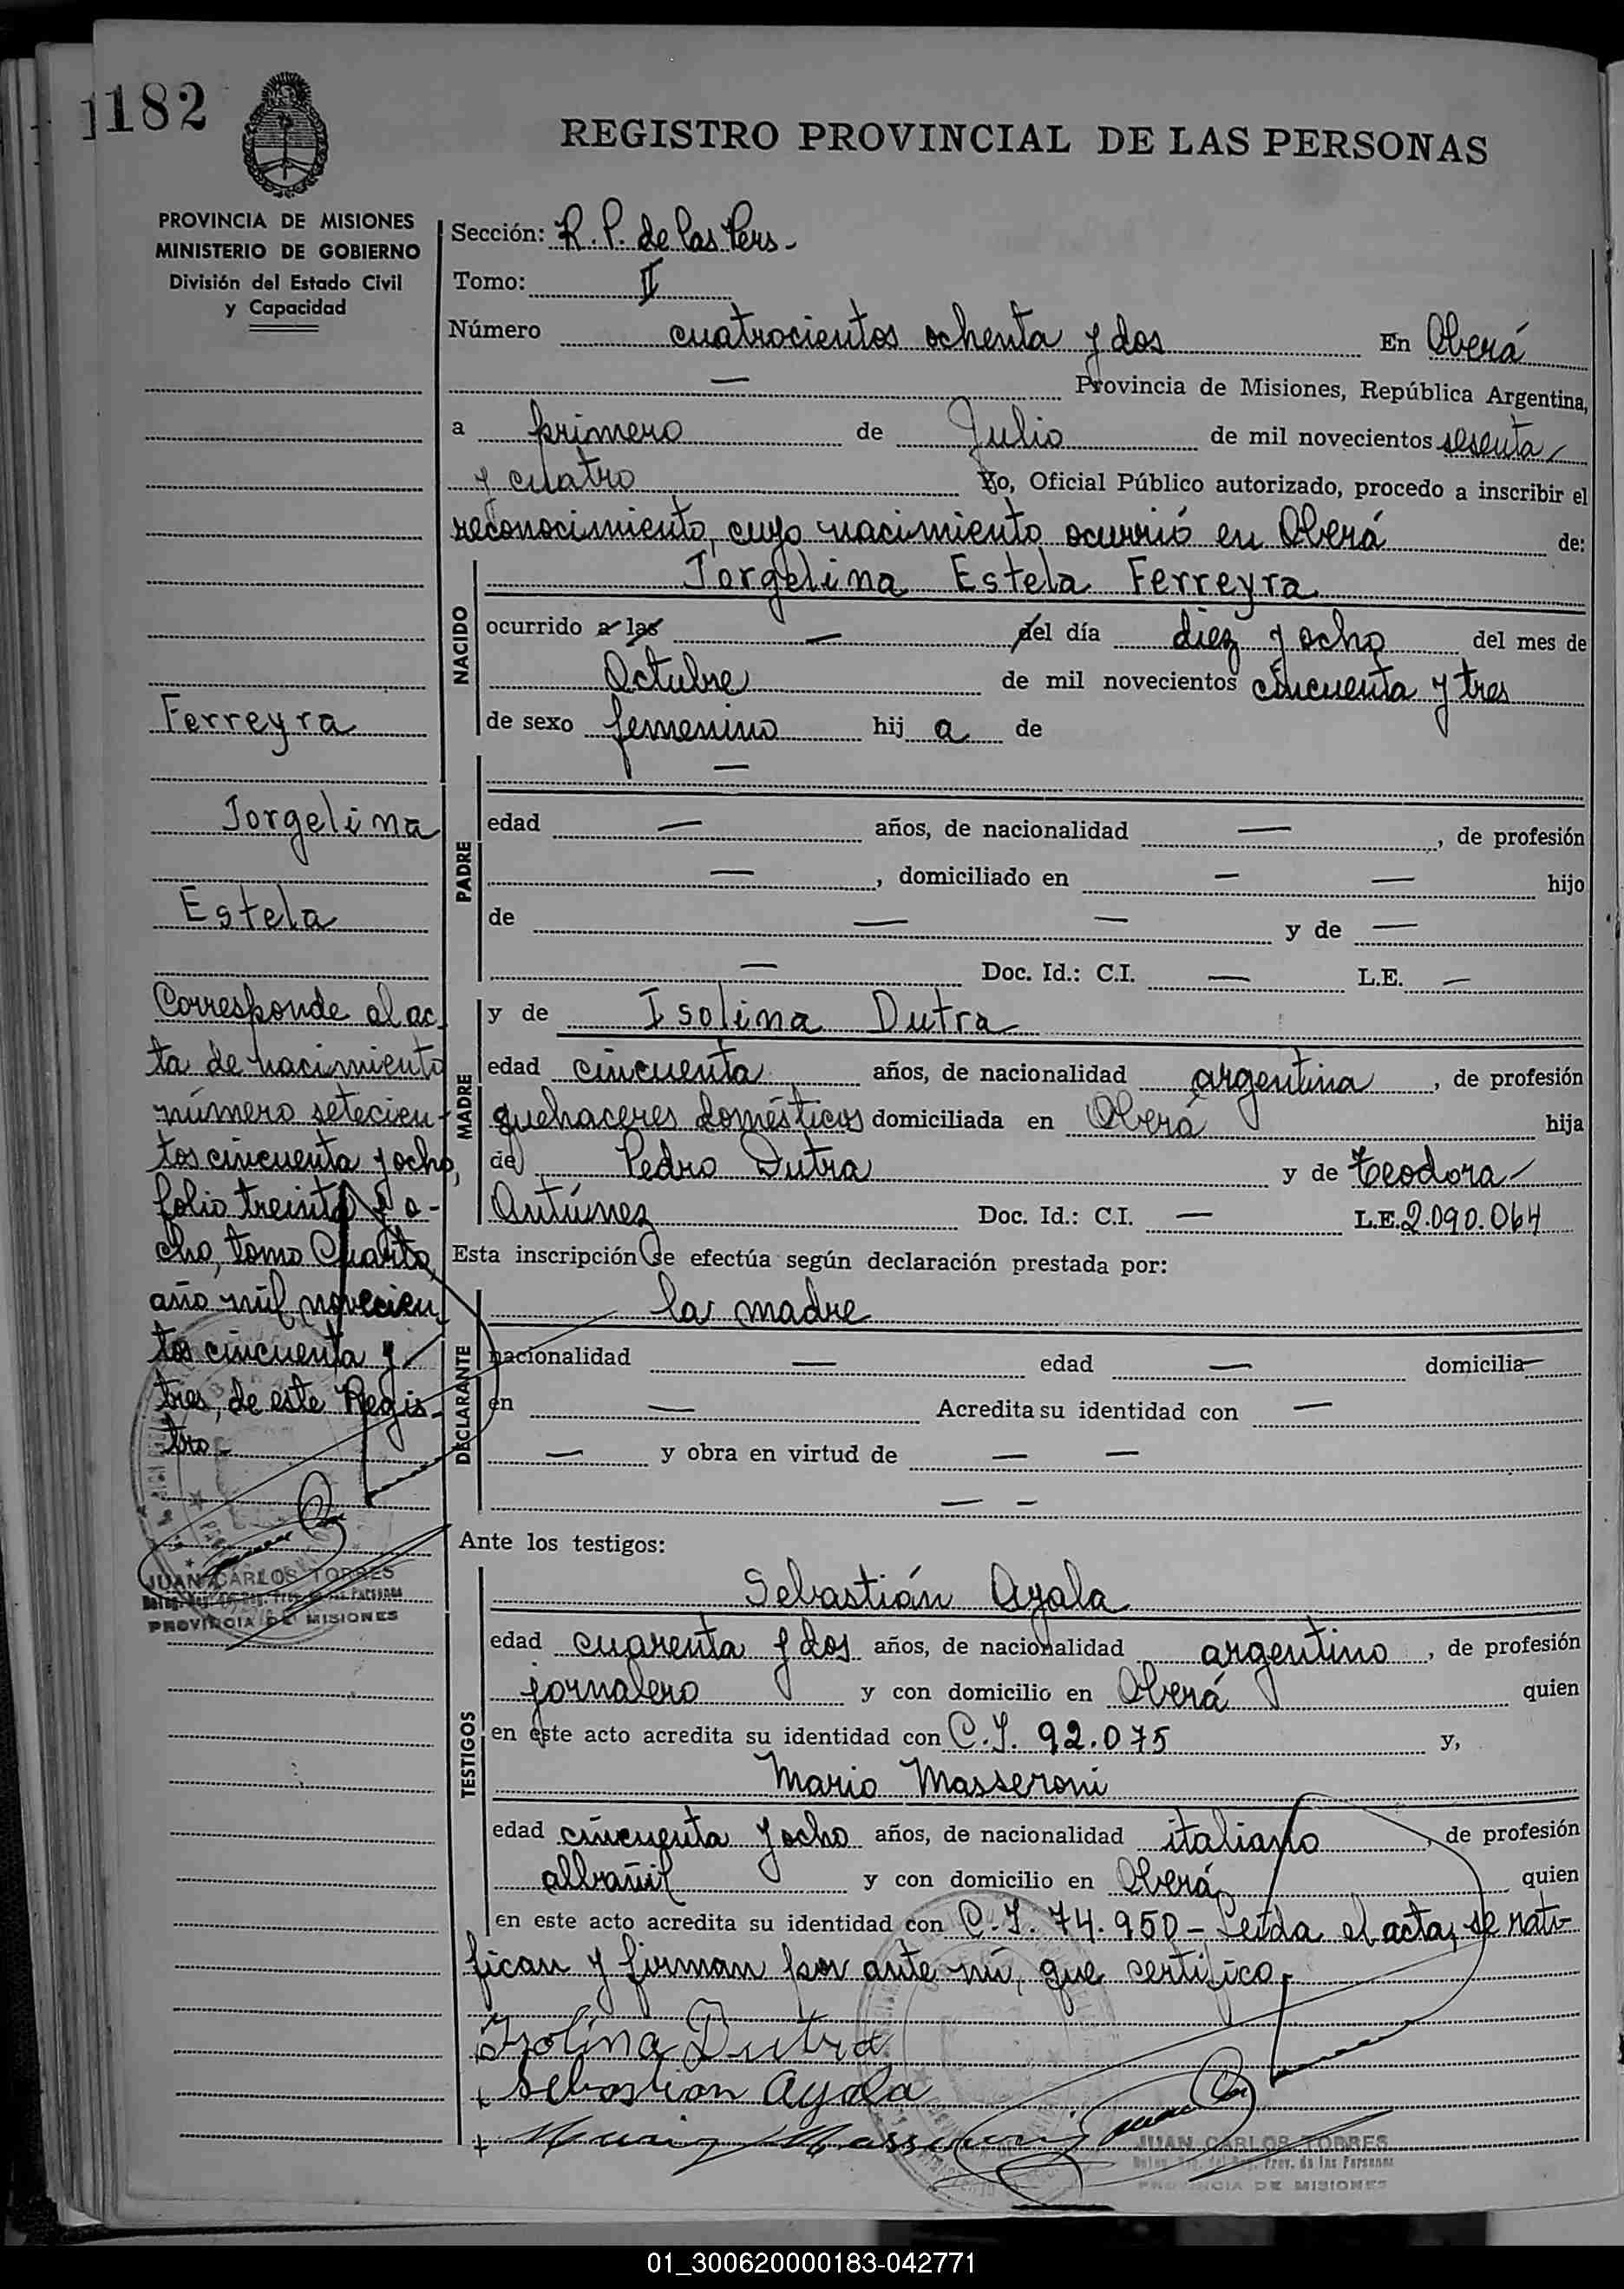 1182
REGISTRO PROVINCIAL DE LAS PERSONAS
PROVINCIA DE MISIONES
MINISTERIO DE GOBIERNO
División del Estado Civil
y Capacidad
Ferreyra
Jorgelina
Estela
Corresponde al ac-
ta de nacimiento
número setecien-
tos cincuenta y ocho,
folio treinta y o-
cho, tomo Cuarto,
año mil novecien
tos cincuenta y
tres, de este Regis-
tro -
JUAN CARLOS TORRES
PROVINCIA DE MISIONES
Sección: R. P. de las Pers -
Tomo: II
Número cuatrocientos ochenta y dos En Oberá
— Provincia de Misiones, República Argentina,
a primero de Julio de mil novecientos sesenta
y cuatro Yo, Oficial Público autorizado, procedo a inscribir el
reconocimiento, cuyo nacimiento ocurrió en Oberá de:
NACIDO
Jorgelina Estela Ferreyra
ocurrido a las — del día diez y ocho del mes de
Octubre de mil novecientos cincuenta y tres
de sexo femenino hij a de
PADRE
—
edad — años, de nacionalidad —, de profesión
—, domiciliado en — — hijo
de — — y de —
— Doc. Id.: C.I. — L.E. —
MADRE
y de Isolina Dutra
edad cincuenta años, de nacionalidad argentina, de profesión
quehaceres domésticos domiciliada en Oberá hija
de Pedro Dutra y de Teodora
Antúnez Doc. Id.: C.I. — L.E. 2.090.064
Esta inscripción se efectúa según declaración prestada por:
DECLARANTE
la madre
nacionalidad — edad — domicilia—
en — Acredita su identidad con —
— y obra en virtud de — —
— —
Ante los testigos:
TESTIGOS
Sebastián Ayala
edad cuarenta y dos años, de nacionalidad argentino, de profesión
jornalero y con domicilio en Oberá quien
en este acto acredita su identidad con C.I. 92.075 y,
Mario Masseroni
edad cincuenta y ocho años, de nacionalidad italiano, de profesión
albañil y con domicilio en Oberá, quien
en este acto acredita su identidad con C.I. 74.950 - Leída el acta, se rati-
fican y firman por ante mí, que certifico.
Isolina Dutra
+ Sebastian Ayala
+ Mario Masseroni
JUAN CARLOS TORRES
Prov. de las Personas
PROVINCIA DE MISIONES
01_300620000183-042771